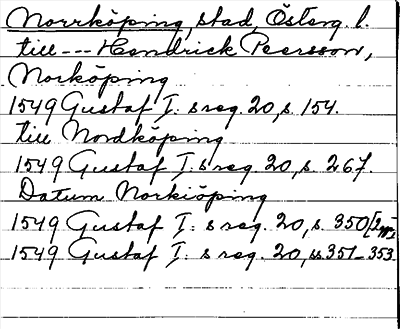 Norrköping, stad, Österg. l.
till --- Hendrick Peersson,
Norköping
1549 Gustaf I: s reg. 20, s. 154.
till Nordköping
1549 Gustaf I: s reg. 20, s. 267.
Datum Norkiöping
1549 Gustaf I: s reg. 20, s. 350 [2
1549 Gustaf I: s reg. 20, ss 351-353